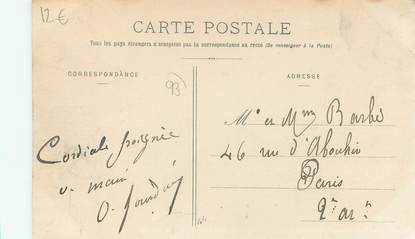 12€
CARTE POSTALE
Tous les pays étrangers n'acceptent pas la correspondance au recto (Se renseigner à la Poste)
CORRESPONDANCE
ADRESSE
93
Cordiale poignée
d. main
Mr et Mme Barbé
46 rue d'Aboukir
Paris
2e arr